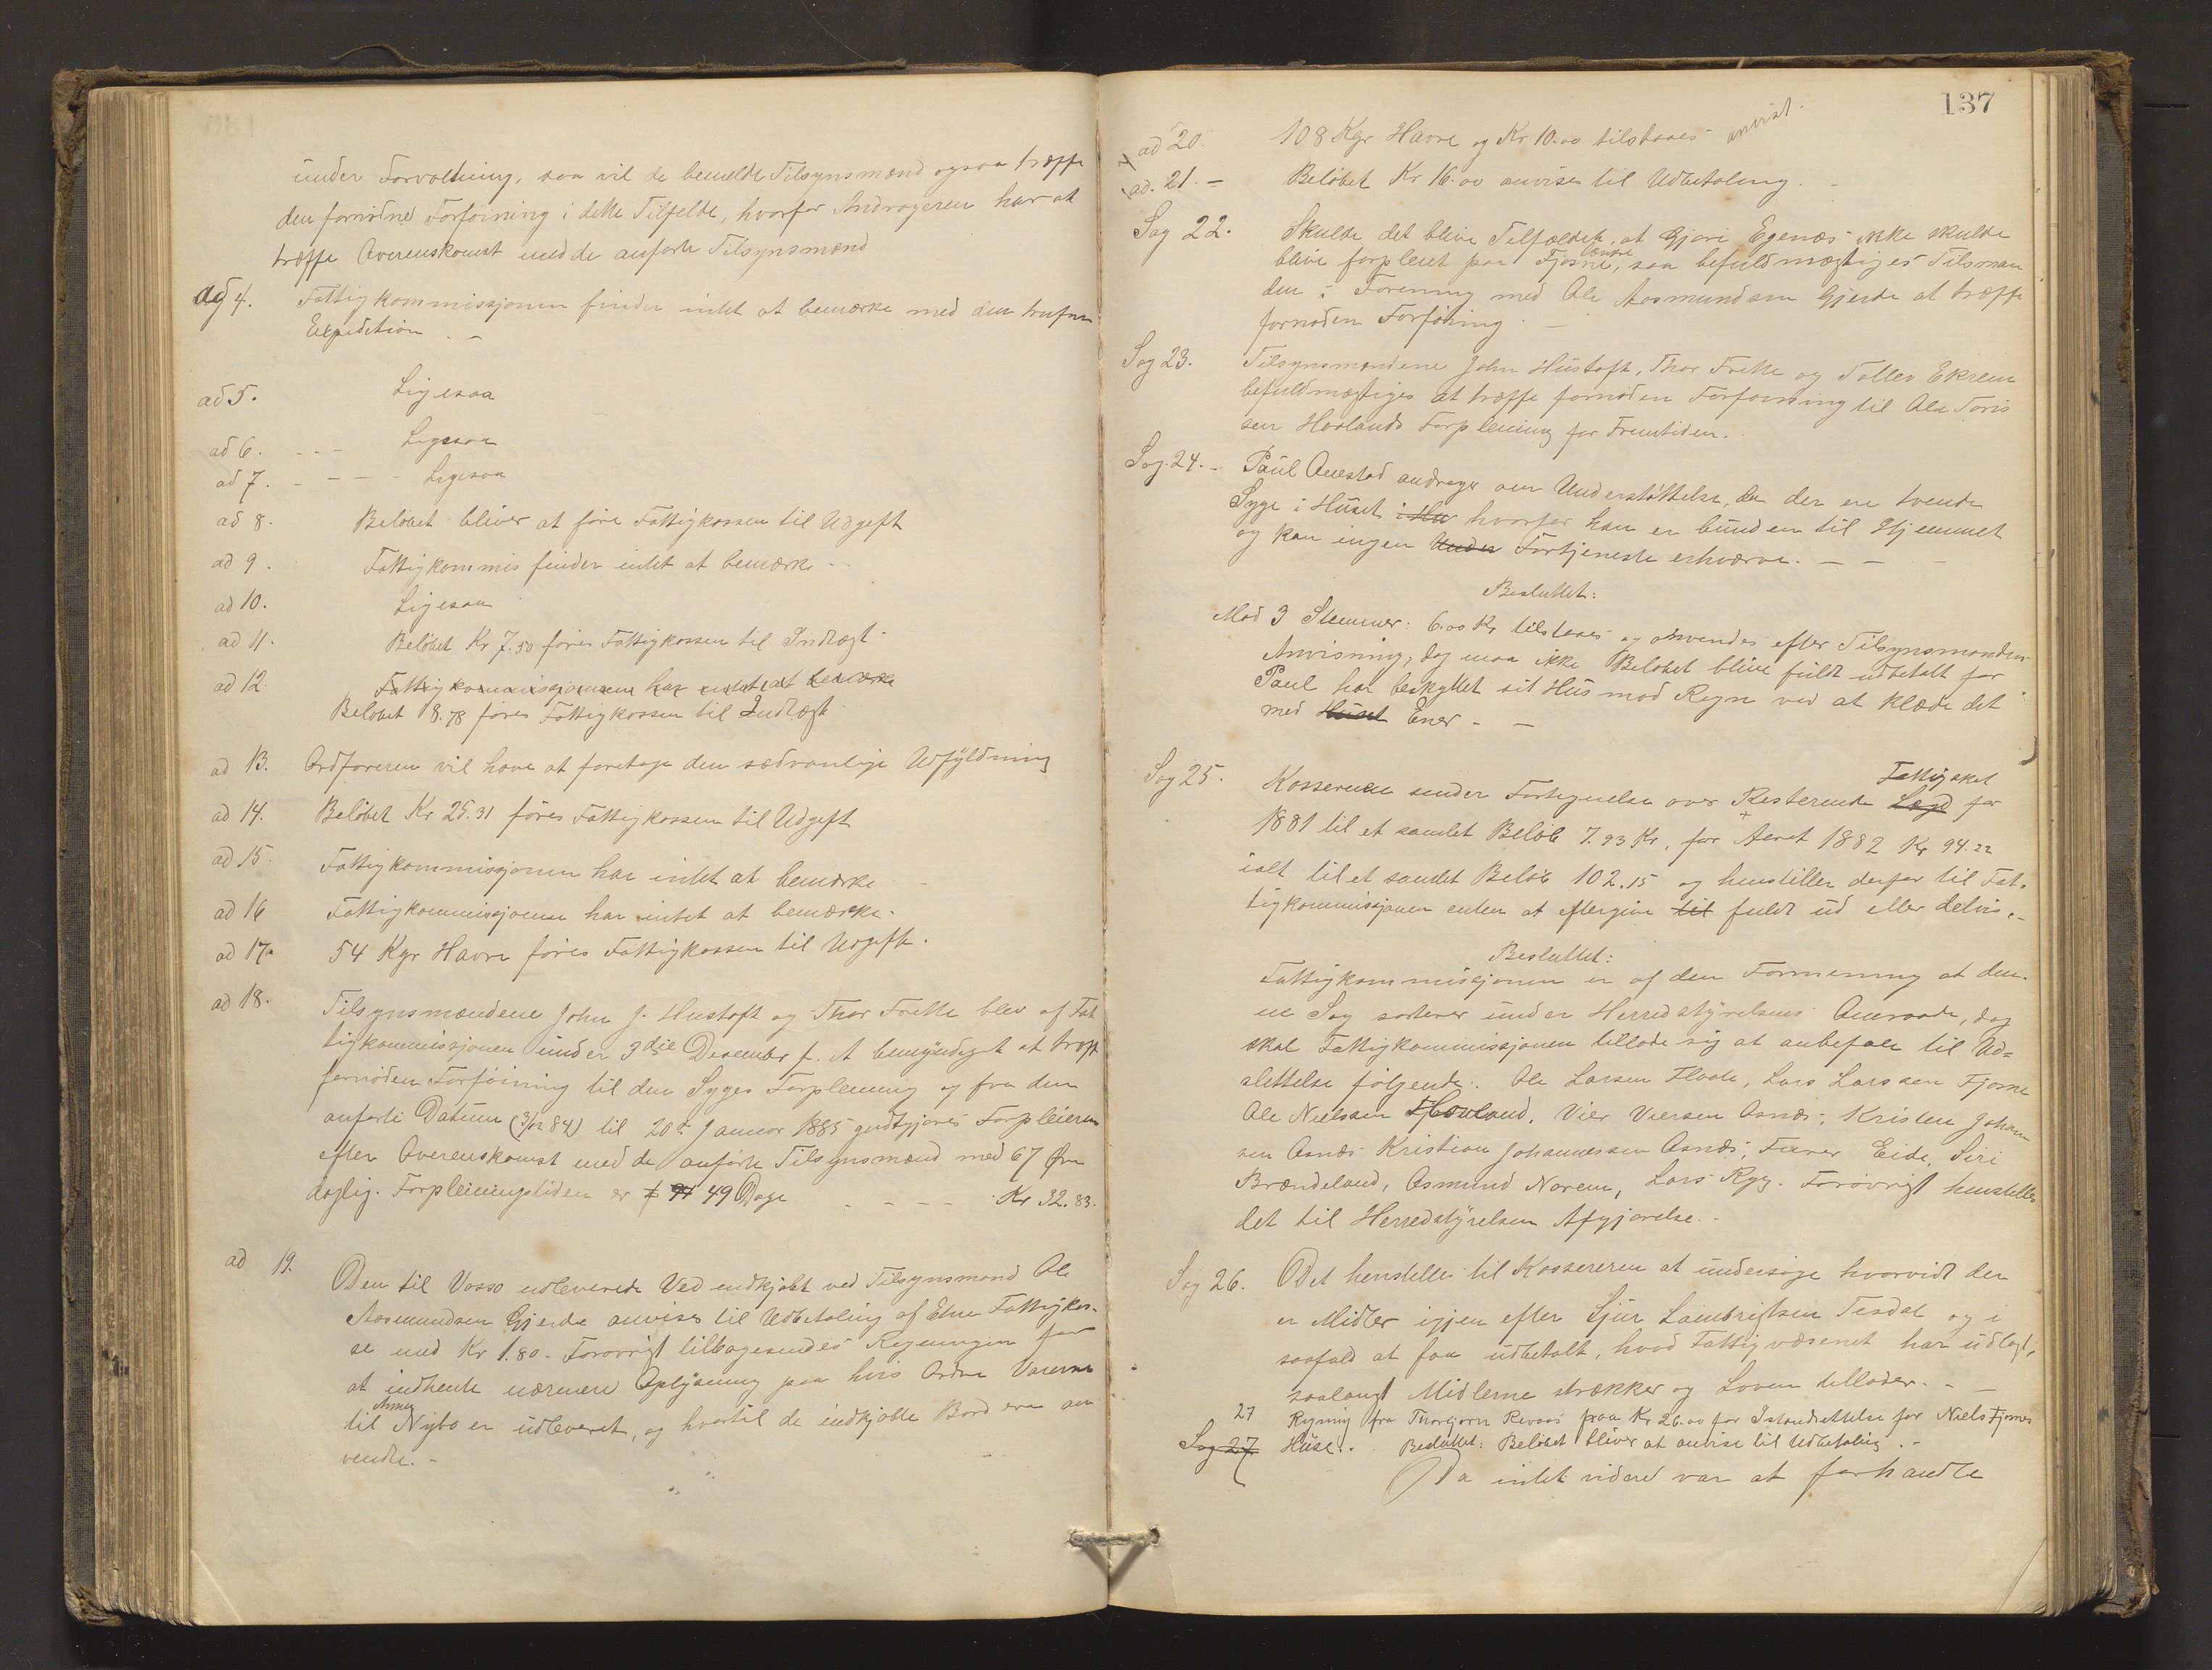 under Forvaltning, saa vil de bemeldte Tilsynsmænd ogsaa træffe
den fornødne Forføining i dette Tilfelde, hvorfor Andrageren har at
træffe Overenskomst med de anførte Tilsynsmænd
ad 4. Fattigkommissjonen finder intet at bemærke med den trufne
Expedition. –
ad 5. Ligesaa
ad 6. - - - Ligesaa
ad 7. - - - - Ligesaa
ad 8. Beløbet bliver at føre Fattigkassen til Udgift
ad 9. Fattigkommis finder intet at bemærke -
ad 10. Ligesaa
ad 11. Beløbet Kr 7.50 føres Fattigkassen til Indtægt -
ad 12. Fattigkommissjonen har intet at bemærke
Beløbet 8.78 føres Fattigkassen til Indtægt
ad 13. Ordføreren vil have at foretage den sædvanlige Udfyldning
ad 14. Beløbet Kr 25.31 føres Fattigkassen til Udgift
ad 15. Fattigkommissjonen har intet at bemærke
ad 16 Fattigkommissjonen har intet at bemærke.
ad 17. 54 Kgr Havre føres Fattigkassen til Udgift.
ad 18. Tilsynsmændene John J. Hustoft og Thor Frette blev af Fat
tigkommissjonen under 3die December f. A bemyndiget at træffe
fornøden Forføining til den Syges Forpleining og fra den
anførte Datum (3/12 84) til 20de Januar 1885 godtgjøres Forpleieren
efter Overenskomst med de anførte Tilsynsmænd med 67 Øre
daglig. Forpleiningstiden er 49 Dage - - - - Kr 32.83.
ad 19. Den til Vosso udleverede Ved indkjøbt ved Tilsynsmand Ole
Aasmundsen Gjerde anvises til Udbetaling af Etne Fattigkas-
se med Kr 1.80. Forøvrigt tilbagesendes Regningen for
at indhente nærmere Oplysning paa hvis Ordre Varerne
Anna
til Nybø er udleveret, og hvortil de indkjøbte Bord ere an
vendte. -
137
ad 20. 108 Kgr Havre og Kr 10.00 tilstaaes anvist.
ad. 21. – Beløbet Kr 16.00 anvises til Udbetaling.
Sag 22. Skulde det blive Tilfældet, at Gjøri Egenæs ikke skulde
længre
blive forpleiet paa Fjøsne, saa befuldmægtiges Tilsman
den i Forening med Ole Aasmundsen Gjerde at træffe
fornøden Forføining. –
Sag 23. Tilsynsmændene John Hustoft, Thor Frette og Tollev Ekrem
befuldmægtiges at træffe fornøden Forføining til Ole Toris
sen Hovlands Forpleining for Fremtiden.
Sag. 24. – Paul Øuestad andrager om Understøttelse, da der ere tvende
Syge i Huset i Hu hvorfor han er bunden til Hjemmet
og kan ingen Under Fortjeneste erhværve. – –
Besluttet:
Mod 3 Stemmer: 6.00 Kr tilstaaes og anvendes efter Tilsynsmanden
Anvisning, dog maa ikke Beløbet blive fuldt udbetalt før
Paul har beskyttet sit Hus mod Regn ved at klæde det
med Huset Ener - –
Sag 25. Kassereren sender Fortegnelse over Resterende Lægd Fattigskat for
1881 til et samlet Beløb 7.93 Kr, for Aaret 1882 Kr 94.22
ialt til et samlet Beløb 102.15 og henstiller derfor til Fat-
tigkommissjonen enten at eftergive til fuldt ud eller delvis. -
Besluttet:
Fattigkommissjonen er af den Formening at den-
ne Sag sorterer under Herredstyrelsens Omraade, dog
skal Fattigkommissjonen tillade sig at anbefale til Ud=
slettelse følgende: Ole Larsen Flaate, Lars Larssen Fjøsne
Ole Nielssen Hovland, Vier Viersen Osnæs, Kristen Johan
sen Osnæs Kristian Johannessen Osnæs, Eide, Siri
Brændeland, Osmund Norem, Lars Ryg. Forøvrigt henstilles
det til Herredstyrelsen Afgjørelse. -
Sag 26. Det henstilles til Kassereren at undersøge hvorvidt der
er Midler igjen efter Sjur Lambrigtsen Tesdal og i
saafald at faa udbetalt, hvad Fattigvæsenet har udlagt,
saalangt Midlerne strækker og Loven tillader. – –
27 Regning fra Thorbjørn Revaas paa Kr 26.00 for Istandsettelse for Niels Fjøsnes
Sag 27 Huse. Besluttet: Beløbet bliver at anvise til Udbetaling. -
Da intet videre var at forhandle